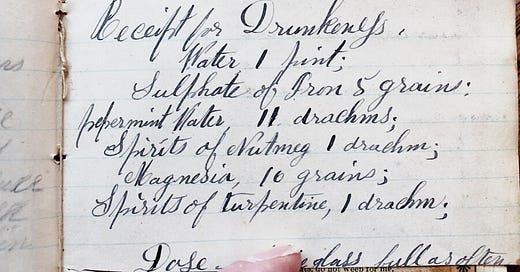 Receipt for Drunkeness.
Water 1 pint;
Sulphate of Iron 5 grains;
pepermint Water 11 drachms;
Spirits of Nutmeg 1 drachm;
Magnesia, 10 grains;
Spirits of turpentine, 1 drachm;
Dose glass full as often